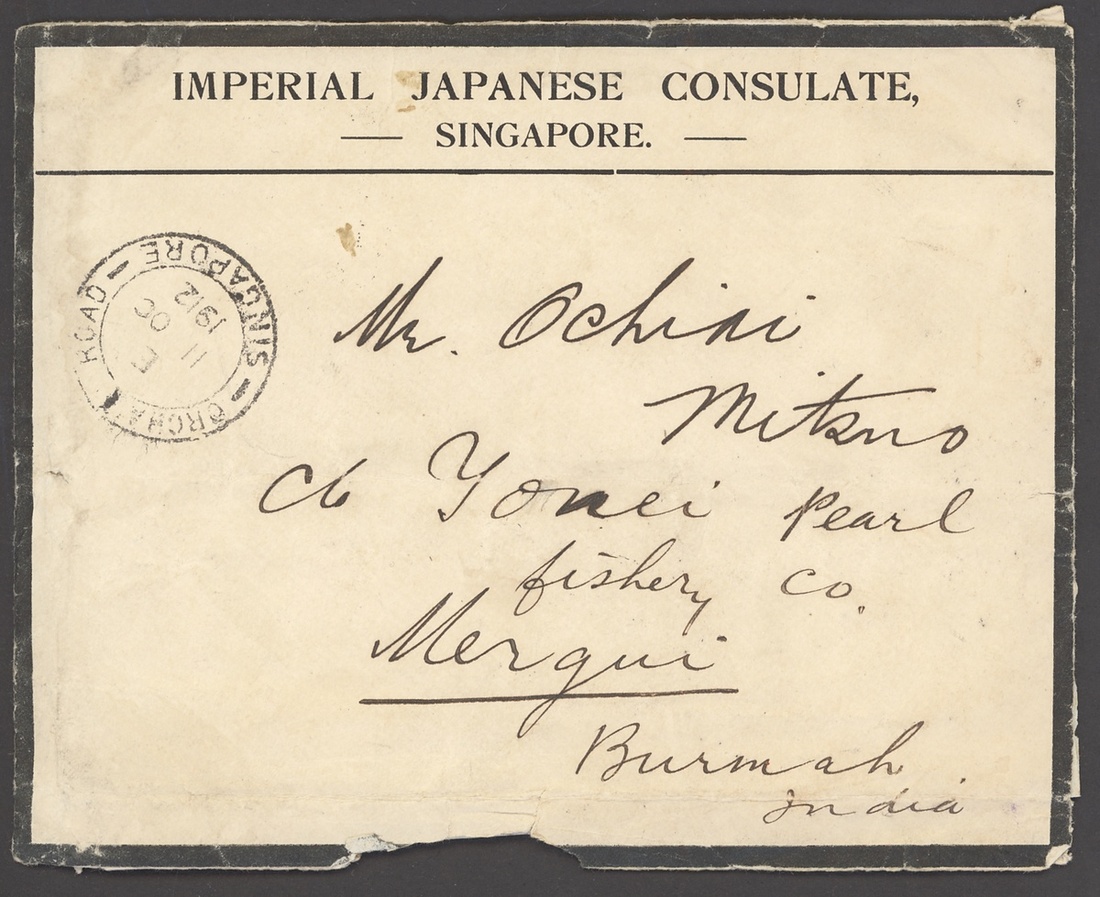 IMPERIAL JAPANESE CONSULATE,
SINGAPORE.
ORCHA ROAD – SINGAPORE –
E
11 OC
1912
Mr. Ochiai
Mitsuo
c/o Yonei Pearl
fishery co.
Mergui
Burmah
India